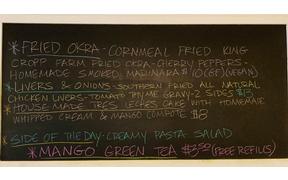 *FRIED OKRA - CORNMEAL FRIED KING
CROPP FARM FRIED OKRA - CHERRY PEPPERS -
HOMEMADE SMOKED MARINARA $10 (GF)(VEGAN)
*LIVERS & ONIONS - SOUTHERN FRIED ALL NATURAL
CHICKEN LIVERS - TOMATO THYME GRAVY - 2 SIDES $13
*HOUSE MADE TRES LECHES CAKE WITH HOMEMADE
WHIPPED CREAM & MANGO COMPOTE $8
*SIDE OF THE DAY - CREAMY PASTA SALAD
*MANGO GREEN TEA $3.50 (FREE REFILLS)